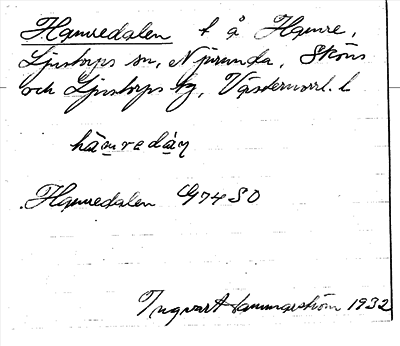 Hamredalen t å Hamre,
Ljustorps sn, Njurunda, Sköns
och Ljustorps tg, Västernorrl. l
hàmredàɳ
Hamredalen G74 SO
Ingvart Hammarström 1932